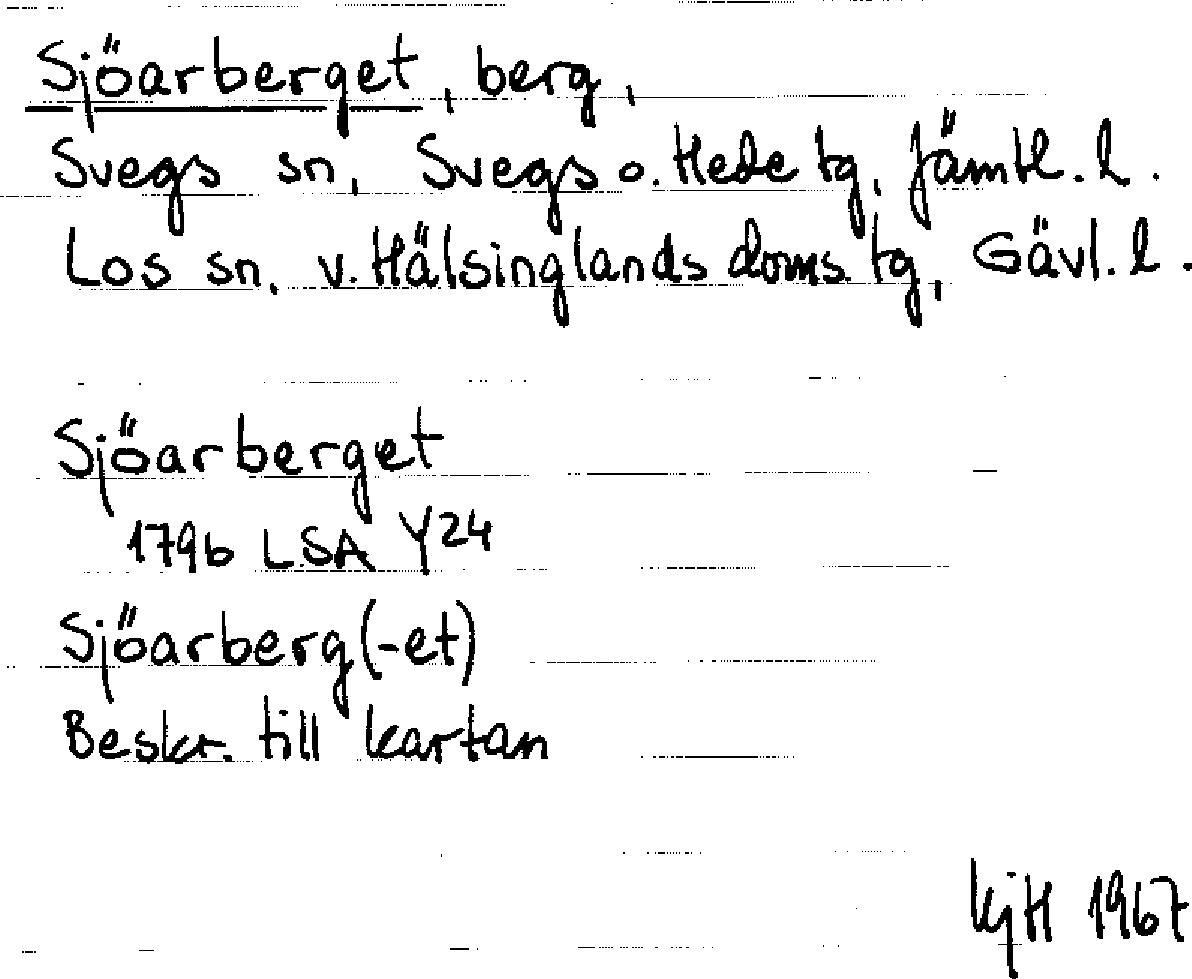 Sjöarberget, berg,
Svegs sn, Svegs o. Hede tg, Jämtl. l.
Los sn, v. Hälsinglands doms. tg, Gävl. l.
Sjöarberget
1796 LSA Y24
Sjöarberg(-et)
Beskr. till kartan
KjH 1967